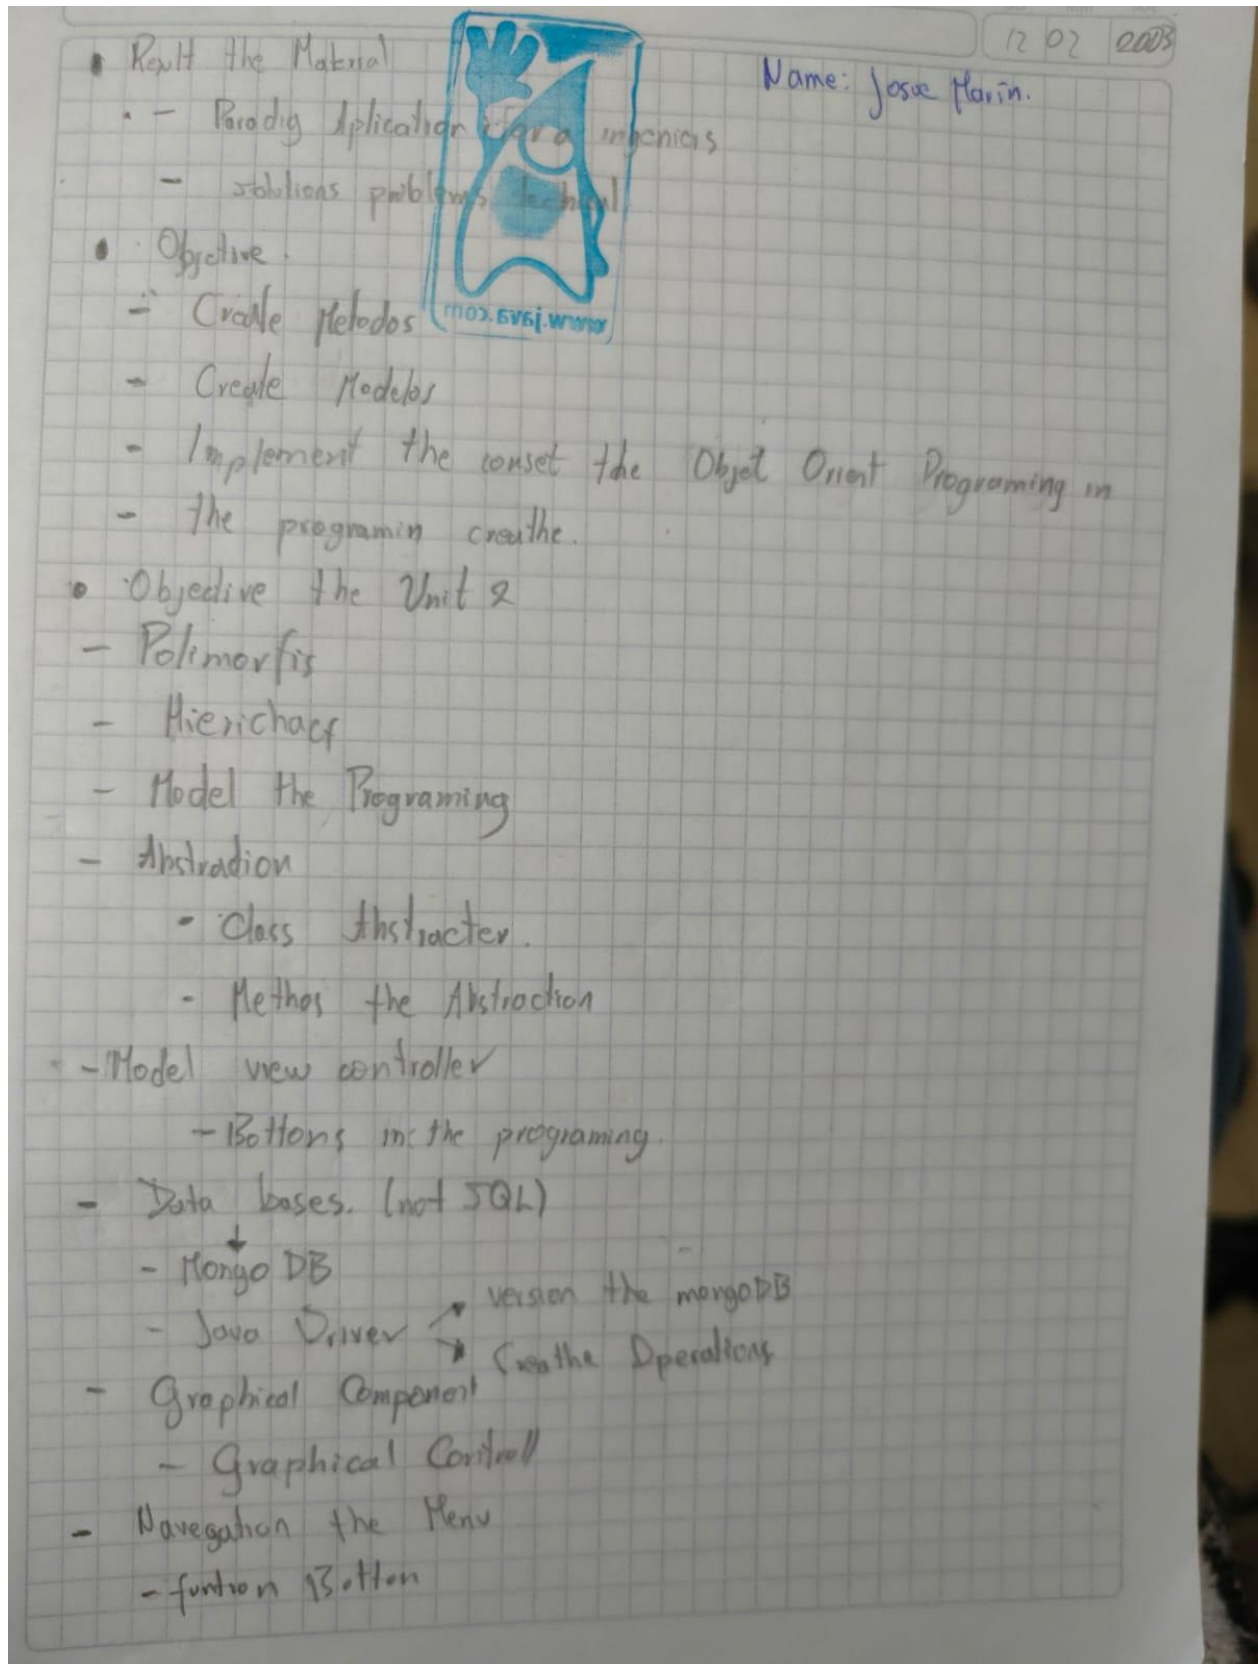 12 02 2003
Name: Josue Marin.
• Rewlt the Material
- Paradig Aplication for a ingenieis
- solutions problems techical
• Objective.
- Create Metodos
www.java.com
- Create Modelos
- Implement the conset the Objet Orient Programing in
- the programin creathe.
• Objective the Unit 2
- Polimorfis
- Hierichacf
- Model the Programing
- Abstraction
- Class Abstracter.
- Methos the Abstraction
- Model view controller
- Bottons in the programing.
- Data bases. (not SQL)
- Mongo DB
- Java Driver
version the mongoDB
Creathe Operations
- Graphical Component
- Graphical Controll
- Navegation the Menu
- funtion Botton